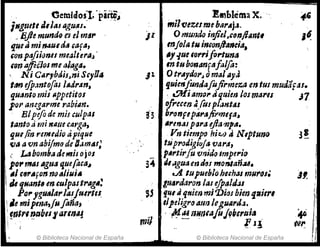 Gemidos I. parte,
juguete de las aguas.
Este mundo es el mar 31
que a mi naue da caça,
con passiones me altera,
con afflictos me alaga.
Ni Carybdis, ni Scylla 32
tan espantosas ladran,
quanto mis appetitos
por anegarme rabian.
El peso de mis culpas 33
tanto à mi naue carga,
que sin remedio à pique
va a vn abismo de llamas;
La bomba de mis ojos
por mas agua que saca, 34
al coraçon no aliuia
de quanto en culpas traga.
Por ygualar las suertes 35
de mi pena, su saña,
entre nubes y arenas
mil
Emblema X. 46
mil vezes me baraja.
O mundo infiel, constante 36
en sola tu inconstancia,
ay que corri fortuna
en tu bonança falsa:
O traydor, ò mal aya
quien funda su firmeza en tus mudãças.
Mi amor à quien los mares 37
ofrecen à sus plantas
bronçe para firmeça,
arenas para estampa.
Vn tiempo hizo à Neptuno 38
tu prodigiosa vara,
partir su vnido imperio
de agua en dos montañas.
A tu pueblo hechas muros; 39
guardaron las espaldas
que à quien mi Dios bien quiere
el peligro aun le guarda.
Mas nunca su soberuia 40
F 2
© Biblioteca Nacional de Espana
© Biblioteca Nacional de Espana